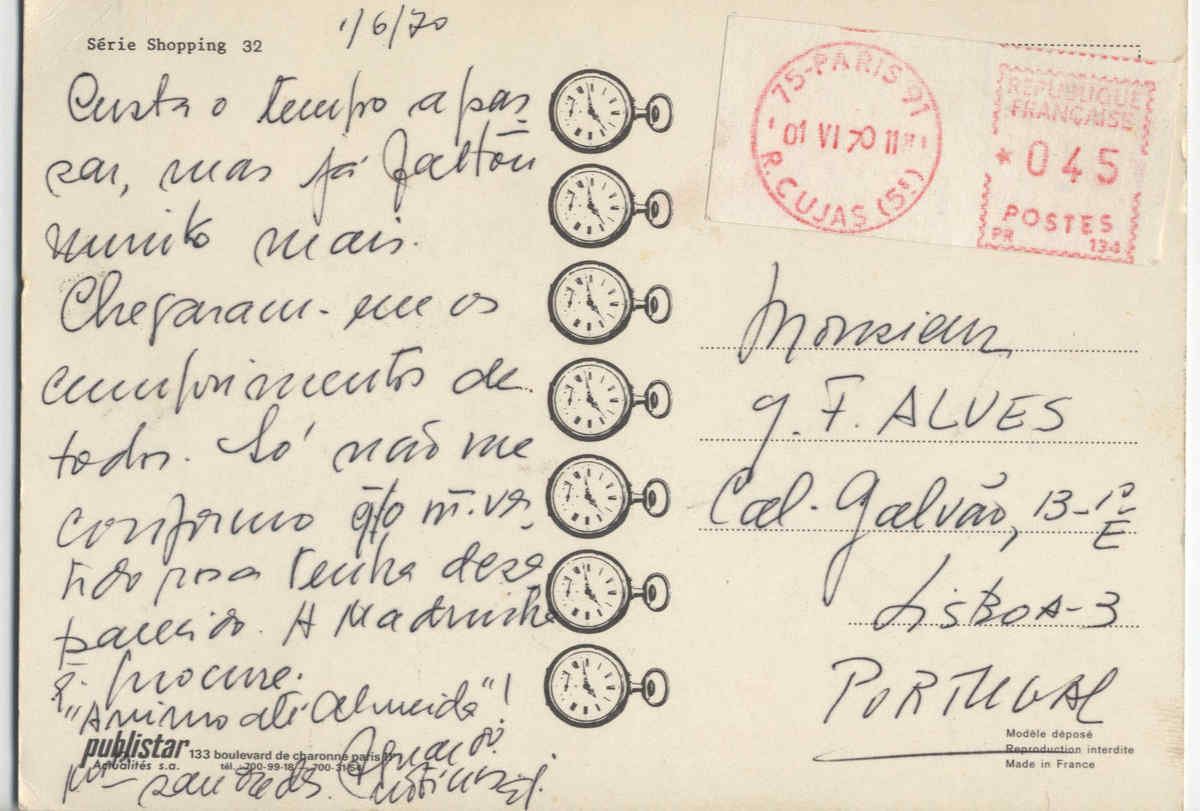 Série Shopping 32
1/6/70
Custa o tempo a pas
sar, mas já faltou
muito mais.
Chegaram-me os
cumprimentos de
todos. Só não me
conformo q/o m. ves
tido rosa tenha desa
parecido. A Madrinha
q. procure.
"Animo até Almeida"!
saudades.
publistar
Actualités s.a.
133 boulevard de charonne paris 11
tél. 700-99-18 700-31-54
75-PARIS 91
01 VI 70 11H
R. CUJAS (5E)
REPUBLIQUE
FRANÇAISE
★ 045
POSTES
PR 134
Monsieur
G. F. ALVES
Cal. Galvão, 13-1º
E
LISBOA-3
PORTUGAL
Modèle déposé
Reproduction interdite
Made in France